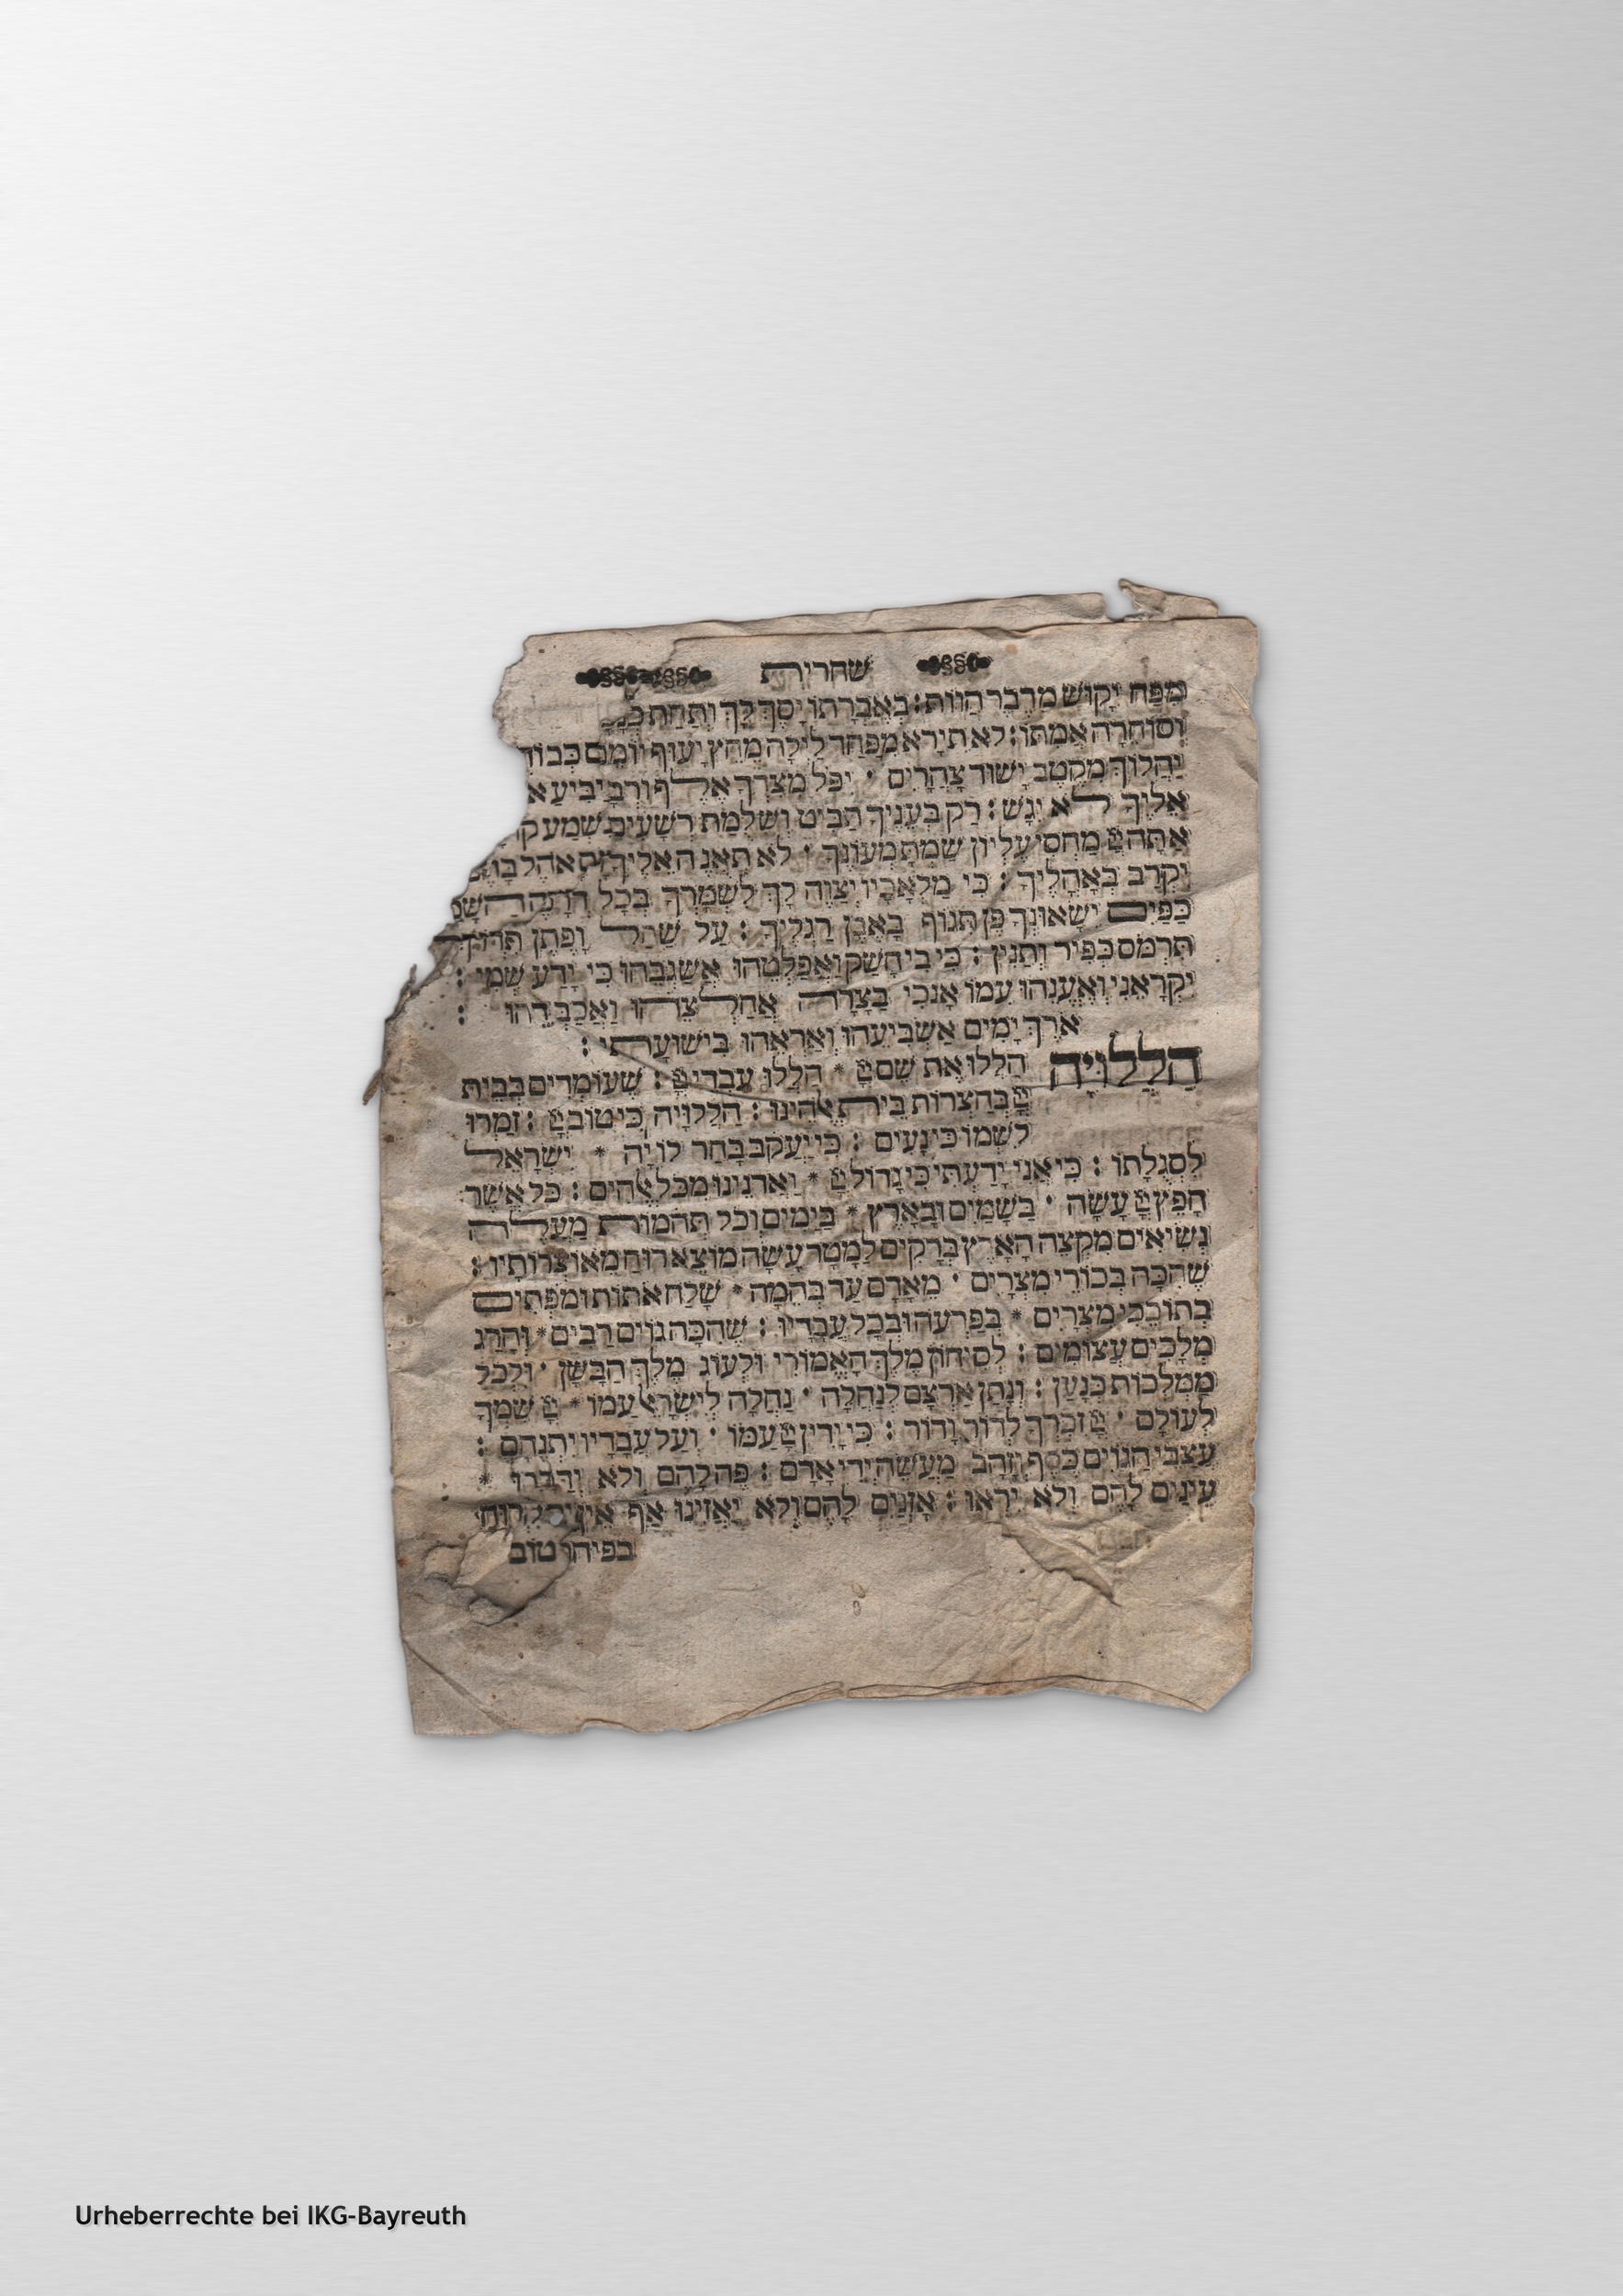 שחרית
מִפַּח יָקוּשׁ מִדֶּבֶר הַוּוֹת: בְּאֶבְרָתוֹ יָסֶךְ לָךְ וְתַחַת
וְסוֹחֵרָה אֲמִתּוֹ: לֹא תִירָא מִפַּחַד לַיְלָה מֵחֵץ יָעוּף יוֹמָם
יַהֲלוֹךְ מִקֶּטֶב יָשׁוּד צָהֳרָיִם · יִפֹּל מִצִּדְּךָ אֶלֶף וּרְבָבָה
אֵלֶיךָ לֹא יִגָּשׁ: רַק בְּעֵינֶיךָ תַבִּיט וְשִׁלֻּמַת רְשָׁעִים
אַתָּה יְיָ מַחְסִי עֶלְיוֹן שַׂמְתָּ מְעוֹנֶךָ · לֹא תְאֻנֶּה אֵלֶיךָ
יִקְרַב בְּאָהֳלֶיךָ: כִּי מַלְאָכָיו יְצַוֶּה לָךְ לִשְׁמָרְךָ בְּכָל
כַּפַּיִם יִשָּׂאוּנְךָ פֶּן תִּגּוֹף בָּאֶבֶן רַגְלֶיךָ: עַל שַׁחַל וָפֶתֶן
תִּרְמֹס כְּפִיר וְתַנִּין: כִּי בִי חָשַׁק וַאֲפַלְּטֵהוּ אֲשַׂגְּבֵהוּ כִּי יָדַע שְׁמִי:
יִקְרָאֵנִי וְאֶעֱנֵהוּ עִמּוֹ אָנֹכִי בְּצָרָה אֲחַלְּצֵהוּ וַאֲכַבְּדֵהוּ:
אֹרֶךְ יָמִים אַשְׂבִּיעֵהוּ וְאַרְאֵהוּ בִּישׁוּעָתִי:
הַלְלוּיָהּ הַלְלוּ אֶת שֵׁם יְיָ * הַלְלוּ עַבְדֵי יְיָ: שֶׁעוֹמְדִים בְּבֵית
יְיָ בְּחַצְרוֹת בֵּית אֱלֹהֵינוּ: הַלְלוּיָהּ כִּי טוֹב יְיָ: זַמְּרוּ
לִשְׁמוֹ כִּי נָעִים: כִּי יַעֲקֹב בָּחַר לוֹ יָהּ * יִשְׂרָאֵל
לִסְגֻלָּתוֹ: כִּי אֲנִי יָדַעְתִּי כִּי גָדוֹל יְיָ * וַאֲדֹנֵינוּ מִכָּל אֱלֹהִים: כֹּל אֲשֶׁר
חָפֵץ יְיָ עָשָׂה · בַּשָּׁמַיִם וּבָאָרֶץ * בַּיַּמִּים וְכָל תְּהֹמוֹת מַעֲלֶה
נְשִׂיאִים מִקְצֵה הָאָרֶץ בְּרָקִים לַמָּטָר עָשָׂה מוֹצֵא רוּחַ מֵאוֹצְרוֹתָיו:
שֶׁהִכָּה בְּכוֹרֵי מִצְרָיִם · מֵאָדָם עַד בְּהֵמָה * שָׁלַח אֹתוֹת וּמֹפְתִים
בְּתוֹכֵכִי מִצְרָיִם * בְּפַרְעֹה וּבְכָל עֲבָדָיו: שֶׁהִכָּה גּוֹיִם רַבִּים * וְהָרַג
מְלָכִים עֲצוּמִים: לְסִיחוֹן מֶלֶךְ הָאֱמוֹרִי וּלְעוֹג מֶלֶךְ הַבָּשָׁן · וּלְכֹל
מַמְלְכוֹת כְּנָעַן: וְנָתַן אַרְצָם לְנַחֲלָה · נַחֲלָה לְיִשְׂרָאֵל עַמּוֹ * יְיָ שִׁמְךָ
לְעוֹלָם · יְיָ זִכְרְךָ לְדוֹר וָדוֹר: כִּי יָדִין יְיָ עַמּוֹ · וְעַל עֲבָדָיו יִתְנֶחָם:
עֲצַבֵּי הַגּוֹיִם כֶּסֶף וְזָהָב מַעֲשֵׂה יְדֵי אָדָם: פֶּה לָהֶם וְלֹא יְדַבֵּרוּ *
עֵינַיִם לָהֶם וְלֹא יִרְאוּ: אָזְנַיִם לָהֶם וְלֹא יַאֲזִינוּ אַף אֵין יֶשׁ רוּחַ
בפיהם טוב
Urheberrechte bei IKG-Bayreuth